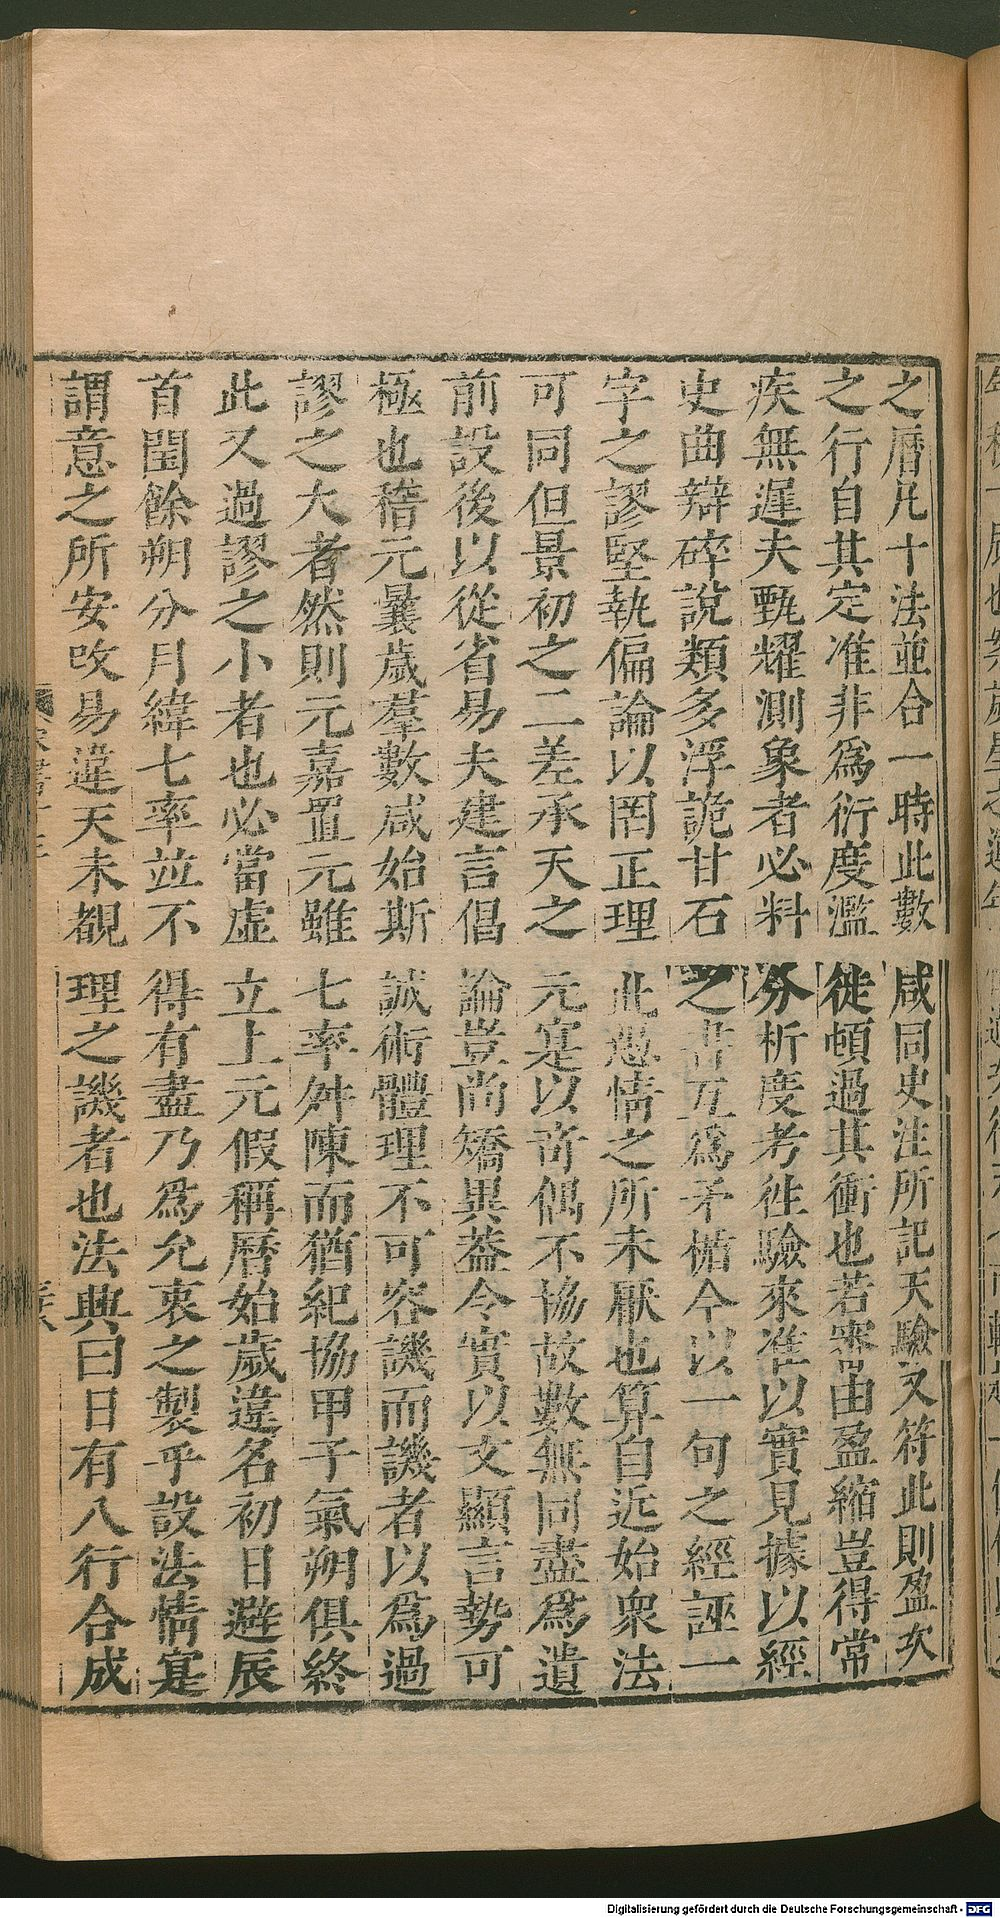 之曆凡十法並合一時此數咸同史注所記天驗又符此則盈次
之行自其定准非爲衍度濫徙頓過其衝也若審由盈縮豈得常
疾無遲夫甄耀測象者必料分析度考徃驗來准以實見據以經
史曲辯碎說類多浮詭甘石之書互爲矛楯今以一句之經誣一
字之謬堅執偏論以罔正理此愚情之所未厭也算自近始衆法
可同但景初之二差承天之元寔以奇偶不協故數無同盡爲遺
前設後以從省易夫建言倡論豈尚矯異葢令實以文顯言勢可
極也稽元曩歲羣數咸始斯誠術體理不可容譏而譏者以爲過
謬之大者然則元嘉置元雖七率舛陳而猶紀協甲子氣朔俱終
此又過謬之小者也必當虛立上元假稱曆始歲違名初日避辰
首閏餘朔分月緯七率並不得有盡乃爲允衷之製乎設法情寔
謂意之所安攺易違天未覩理之譏者也法興曰日有八行合成
Digitalisierung gefördert durch die Deutsche Forschungsgemeinschaft - DFG